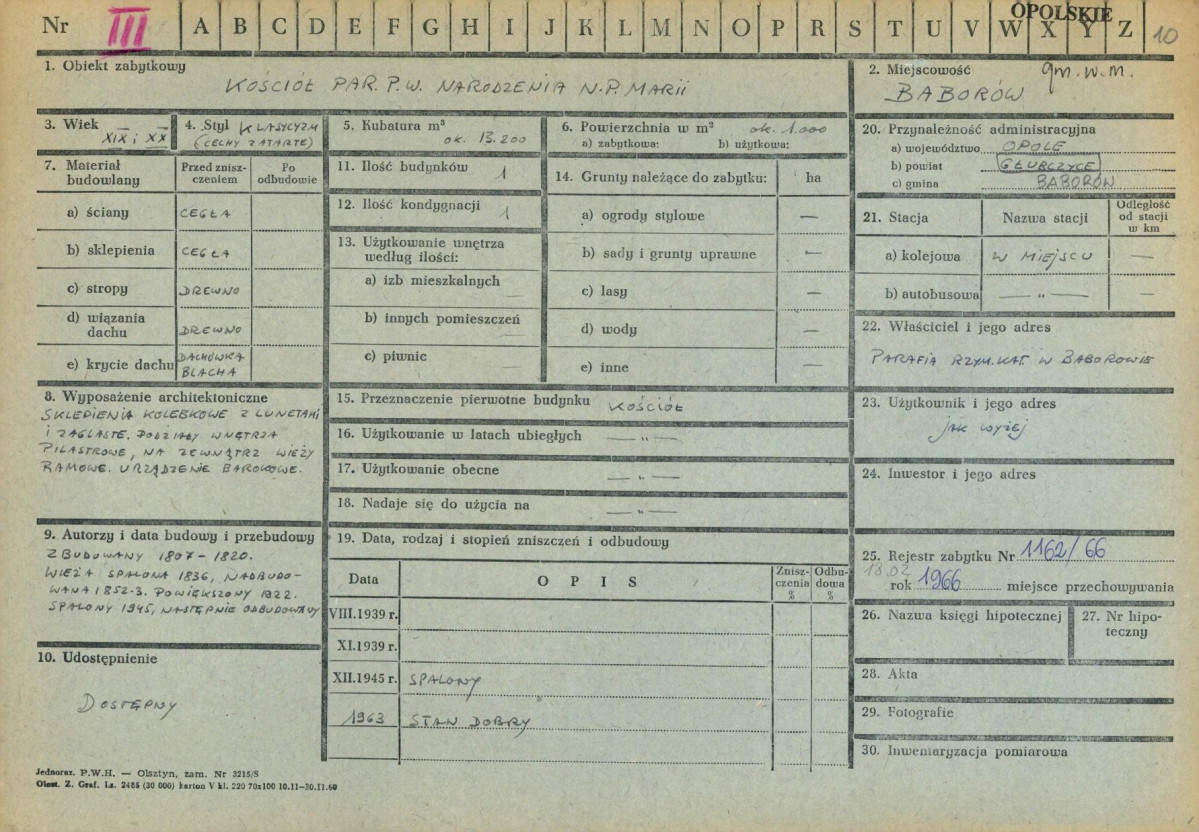 Nr III A B C D E F G H I J K L M N O P R S T U V W X Y Z
OPOLSKIE
10
1. Obiekt zabytkowy
KOŚCIÓŁ PAR. P.W. NARODZENIA N.P. MARII
2. Miejscowość gm. w. m.
BABORÓW
3. Wiek
XIX i XX
4. Styl KLASYCYZM
(CECHY ZATARTE)
5. Kubatura m³
ok. 13.200
6. Powierzchnia w m² ok. 1.000
a) zabytkowa: b) użytkowa:
7. Materiał budowlany
Przed znisz-
czeniem
Po
odbudowie
a) ściany CEGŁA
b) sklepienia CEGŁA
c) stropy DREWNO
d) wiązania
dachu DREWNO
e) krycie dachu DACHÓWKA
BLACHA
8. Wyposażenie architektoniczne
SKLEPIENIA KOLEBKOWE Z LUNETAMI
I ŻAGLASTE. PODZIAŁY WNĘTRZA
PILASTROWE, NA ZEWNĄTRZ WIEŻY
RAMOWE. URZĄDZENIE BAROKOWE.
9. Autorzy i data budowy i przebudowy
ZBUDOWANY 1807 – 1820.
WIEŻA SPALONA 1836, NADBUDO-
WANA 1852-3. POWIĘKSZONY 1922.
SPALONY 1945, NASTĘPNIE ODBUDOWANY
10. Udostępnienie
DOSTĘPNY
11. Ilość budynków 1
12. Ilość kondygnacji 1
13. Użytkowanie wnętrza
według ilości:
a) izb mieszkalnych —
b) innych pomieszczeń —
c) piwnic —
14. Grunty należące do zabytku: ha
a) ogrody stylowe —
b) sady i grunty uprawne —
c) lasy —
d) wody —
e) inne —
15. Przeznaczenie pierwotne budynku KOŚCIÓŁ
16. Użytkowanie w latach ubiegłych — „ —
17. Użytkowanie obecne — „ —
18. Nadaje się do użycia na — „ —
19. Data, rodzaj i stopień zniszczeń i odbudowy
Data OPIS
Znisz-
czenia
%
Odbu-
dowa
%
VIII.1939 r.
XI.1939 r.
XII.1945 r. SPALONY
1963 STAN DOBRY
20. Przynależność administracyjna
a) województwo OPOLE
b) powiat GŁUBCZYCE
c) gmina BABORÓW
21. Stacja Nazwa stacji
Odległość
od stacji
w km
a) kolejowa W MIEJSCU —
b) autobusowa — „ — —
22. Właściciel i jego adres
PARAFIA RZYM. KAT. W BABOROWIE
23. Użytkownik i jego adres
JAK WYŻEJ
24. Inwestor i jego adres
25. Rejestr zabytku Nr 1162/66
18.02
rok 1966 miejsce przechowywania
26. Nazwa księgi hipotecznej
27. Nr hipo-
teczny
28. Akta
29. Fotografie
30. Inwentaryzacja pomiarowa
Jednoraz. P.W.H. — Olsztyn, zam. Nr 3215/S
Olszt. Z. Graf. Lz. 2485 (30 000) karton V kl. 220 70x100 10.11—30.11.60